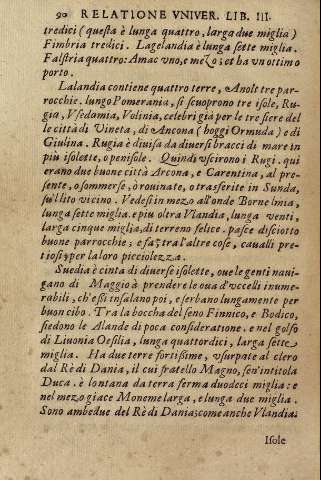 90 RELATIONE VNIVER. LIB. III.
tredici (questa è lunga quattro, larga due miglia)
Fimbria tredici. Lagelandia è lunga sette miglia.
Falstria quattro: Amac vno, e mezo; et ha vn ottimo
porto.
Lalandia contiene quattro terre, Anolt tre par-
rocchie. lungo Pomerania, si scuoprono tre isole, Ru-
gia, Vsedamia, Volinia, celebri già per le tre fiere del
le città di Vineta, di Ancona (hoggi Ormuda) e di
Giulina. Rugia è diuisa da diuersi bracci di mare in
più isolette, o penisole. Quindi vscirono i Rugi. qui
erano due buone città Arcona, e Carentina, al pre-
sente, o sommerse, ò rouinate, o trasferite in Sunda,
sul lito vicino. Vedesi in mezo all'onde Bornelmia,
lunga sette miglia. e piu oltra Vlandia, lunga venti,
larga cinque miglia, di terreno felice. pasce disciotto
buone parrocchie; e fa, tra l'altre cose, caualli pre-
tiosi, per la loro picciolezza.
Suedia è cinta di diuerse isolette, oue le genti naui-
gano di Maggio à prendere le oua d'vccelli inume-
rabili, ch'essi insalano poi, e serbano lungamente per
buon cibo. Tra la bocca del seno Finnico, e Bodico,
siedono le Alande di poca consideratione. e nel golfo
di Liuonia Oesilia, lunga quattordici, larga sette
miglia. Ha due terre fortissime, vsurpate al clero
dal Rè di Dania, il cui fratello Magno, sen'intitola
Duca. è lontana da terra ferma duodeci miglia: e
nel mezo giace Mone me larga, e lunga due miglia.
Sono ambedue del Rè di Dania; come anche Vlandia.
Isole